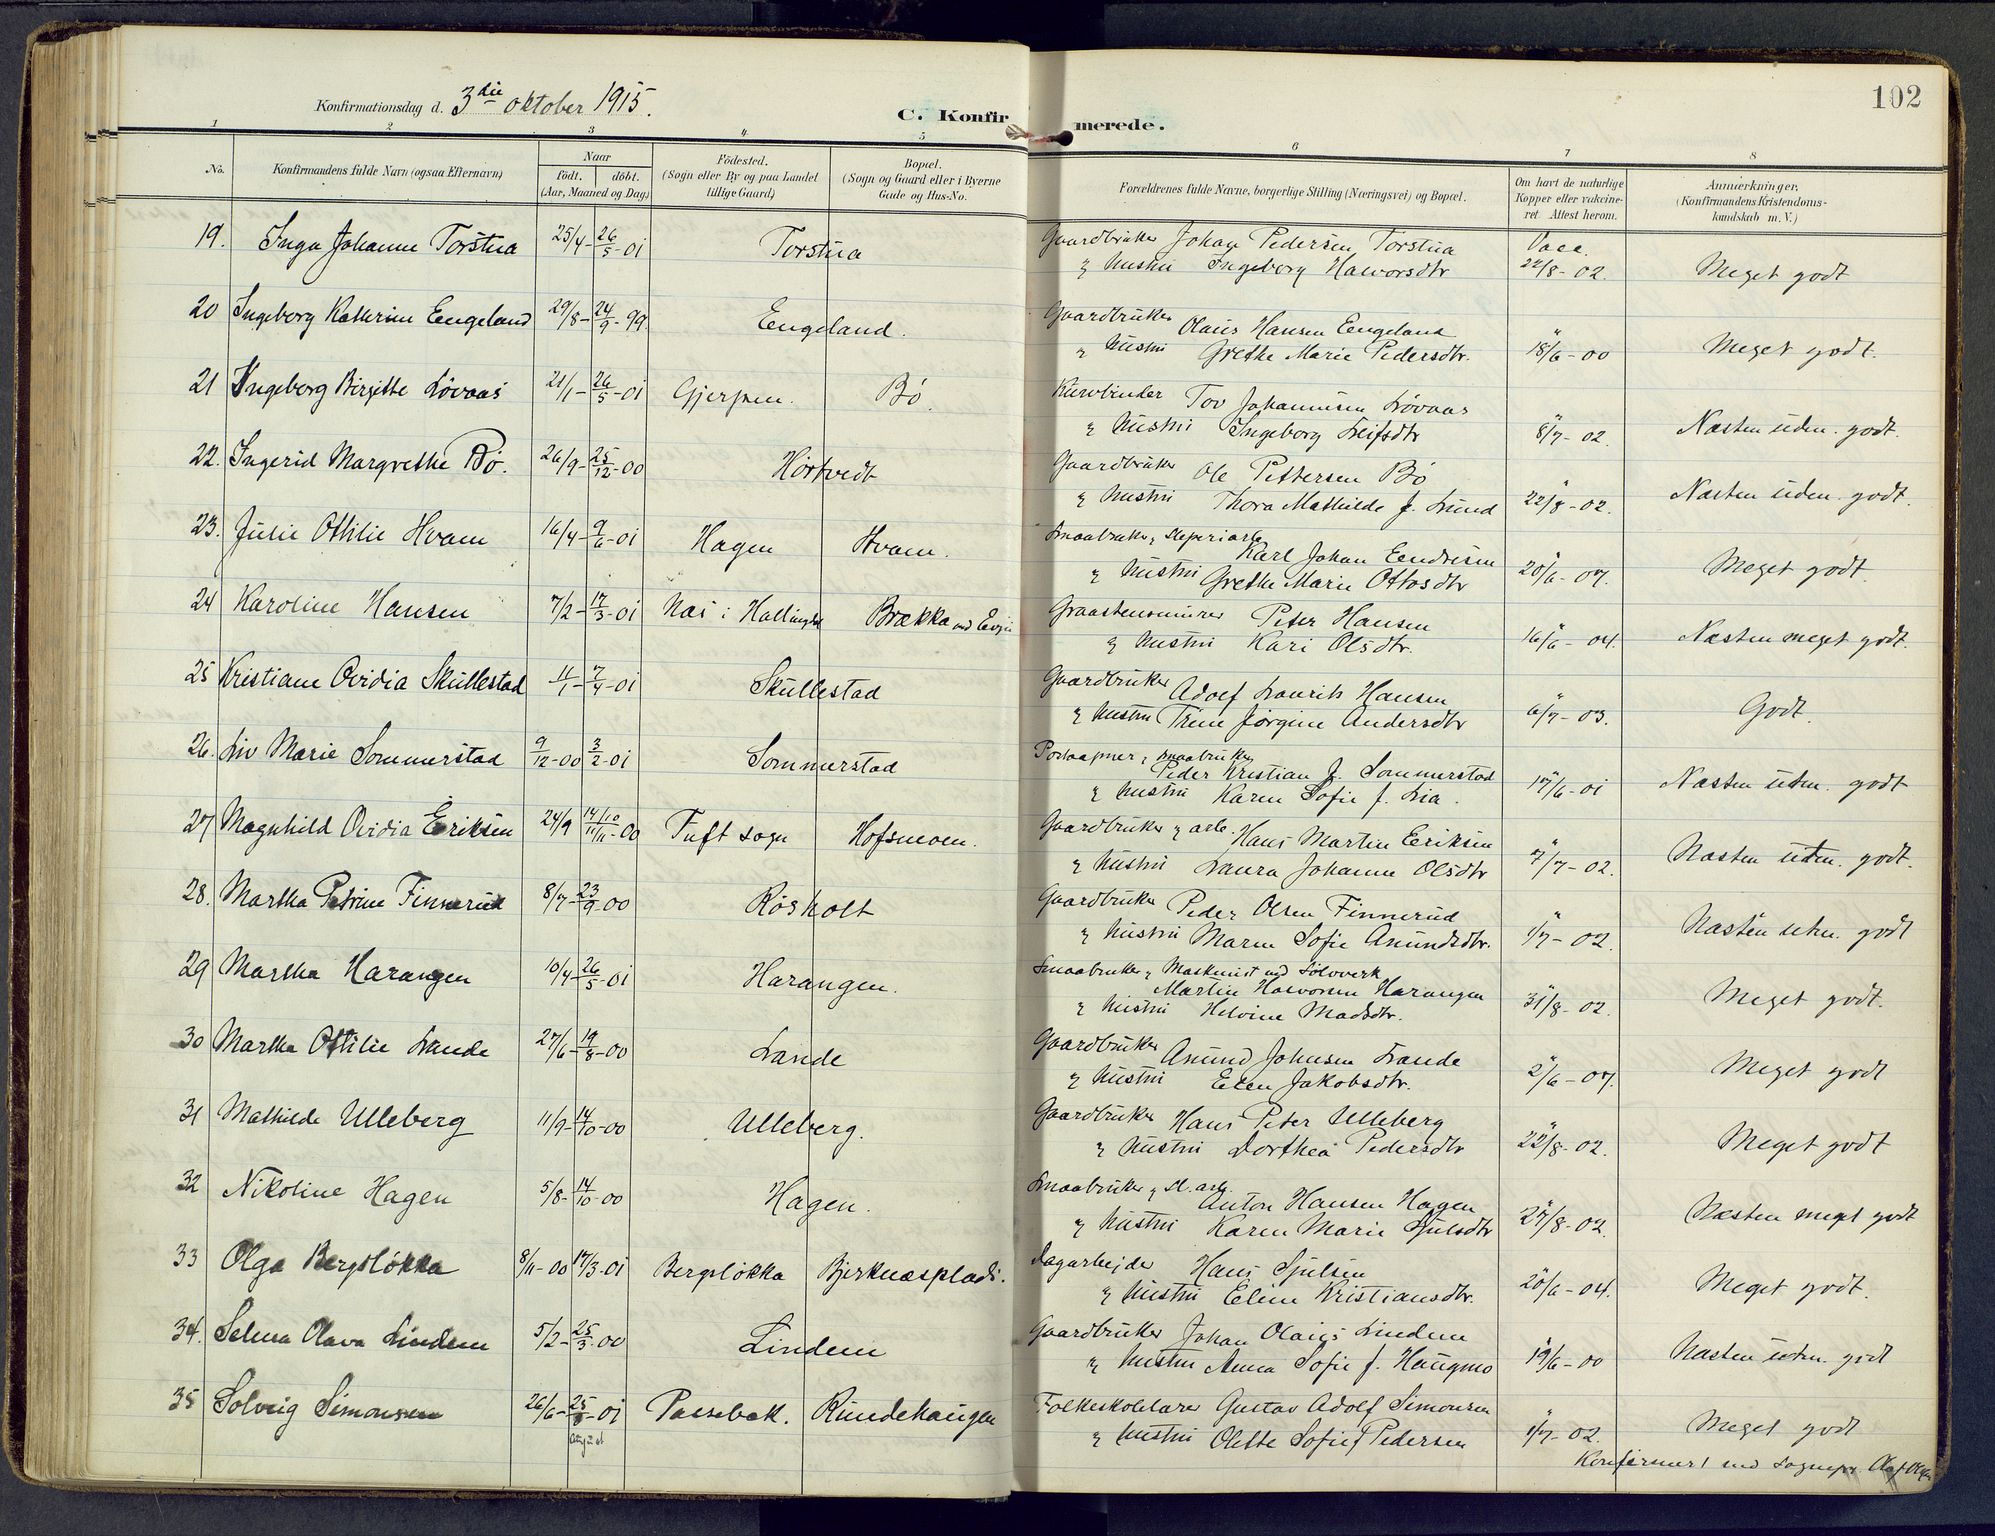 102
Konfirmationsdag d. 3die oktober 1915.
C. Konfirmerede.
1 2 3 4 5 6 7 8
No.
Konfirmandens fulde Navn (ogsaa Efternavn)
Naar
født. døbt.
(Aar, Maaned og Dag)
Födested.
(Sogn eller By og paa Landet
tillige Gaard)
Bopæl.
(Sogn og Gaard eller i Byerne
Gade og Hus-No.
Forældrenes fulde Navne, borgerlige Stilling (Næringsvei) og Bopæl.
Om havt de naturlige
Kopper eller vakcine-
ret. Attest herom.
Anmærkninger.
(Konfirmandens Kristendoms-
kundskab m. V.)
19. Inga Johanne Torstua 25/4 - 26/5 - 01 Torstua Gaardbruker Johan Pedersen Torstua Vacc.
hustru Ingeborg Halvorsdtr 22/8 - 02. Meget godt
20 Ingeborg Kathrine Engeland 29/8 - 24/9 - 99. Engeland. Gaardbruker Olaus Hansen Engeland
hustru Grethe Marie Pedersdtr. 18/6 - 00 Meget godt.
21 Ingeborg Birgitte Løvaas 21/1 - 26/5 - 01 Gjerpen. Bø. Kurvbinder Tov Johannesen Løvaas
hustru Ingeborg Leifsdtr 8/7 - 02. Næsten uden. godt.
22. Ingerid Margrethe Bø. 26/9 - 25/12 - 00 Hørtvedt Gaardbruker Ole Pettersen Bø
hustru Thora Mathilde f. Lund 22/8 - 02. Næsten uden. godt.
23. Julie Ottilie Hvam 16/4 - 9/6 - 01 Hagen Hvam. Smaabruker, sliperiarb. Karl Johan Eendresen
hustru Grethe Marie Ottosdtr 20/6 - 07. Meget godt.
24 Karoline Hansen 7/2 - 17/3 - 01 Næs i Hallingdal Brække Graastensmurer Peter Hansen
hustru Kari Olsdtr. 16/6 - 04. Næsten meget godt.
25 Kristiane Ovidia Skullestad 11/1 - 7/4 - 01 Skullestad Gaardbruker Adolf Laurits Hansen
hustru Trine Jørgine Andersdtr 6/7 - 03. Godt.
26. Liv Marie Sommerstad 9/12 - 00 3/2 - 01 Sommerstad Postaapner, smaabruker Peder Kristian J. Sommerstad
hustru Karen Sofie f. Lia. 17/6 - 01 Næsten utm. godt
27 Magnhild Ovidia Eriksen 24/9 14/10 11/11 - 00 Tuft sogn Hofsmoen. Gaardbruker arb. Hans Martin Eriksen
hustru Laura Johanne Olsdtr 7/7 - 02. Næsten utm. godt.
28. Martha Petrine Finnerud 8/7 - 23/9 - 00 Røskolt Gaardbruker Peder Olsen Finnerud
hustru Maren Sofie Anundsdtr. 1/7 - 02. Næsten utm. godt
29 Martha Harangen 10/4 - 26/5 - 01 Harangen. Smaabruker, Maskinist ved Sølvverk Martin Halvorsen Harangen
hustru Helvine Madsdtr. 31/8 - 02. Meget godt.
30 Martha Ottilie Lande 27/6 - 19/8 - 00 Lande Gaardbruker Anund Johnsen Lande
hustru Elen Jakobsdtr. 2/6 - 07. Meget godt
31 Mathilde Ulleberg 11/9 - 14/10 - 00 Ulleberg. Gaardbruker Hans Peter Ulleberg
hustru Dorthea Pedersdtr 22/8 - 02. Meget godt
32 Nikoline Hagen 5/8 - 14/10 - 00 Hagen. Smaabruker, sl. arb. Anton Hansen Hagen
hustru Karen Marie Sjulsdtr 27/8 - 02. Næsten meget godt
33 Olga Bergsløkka 8/11 - 00 17/3 - 01 Bergsløkka Bjerknæsplads. Dagarbejder Hans Sjulsen
hustru Eline Kristiansdtr. 20/6 - 04. Meget godt.
34. Selma Olava Lindem 5/2 - 25/3 - 00 Lindem Gaardbruker Johan Olaus Lindem
hustru Anna Sofie f. Haugmo 19/6 - 00 Næsten utm. godt
35 Solveig Simonsen 26/6 - 25/8 - 01 Passebæk. Rundehaugen Folkeskolelærer Gustav Adolf Simonsen
august
hustru Olette Sofie f. Pedersen 1/7 - 02. Meget godt
Konfirmert ved sognepr.